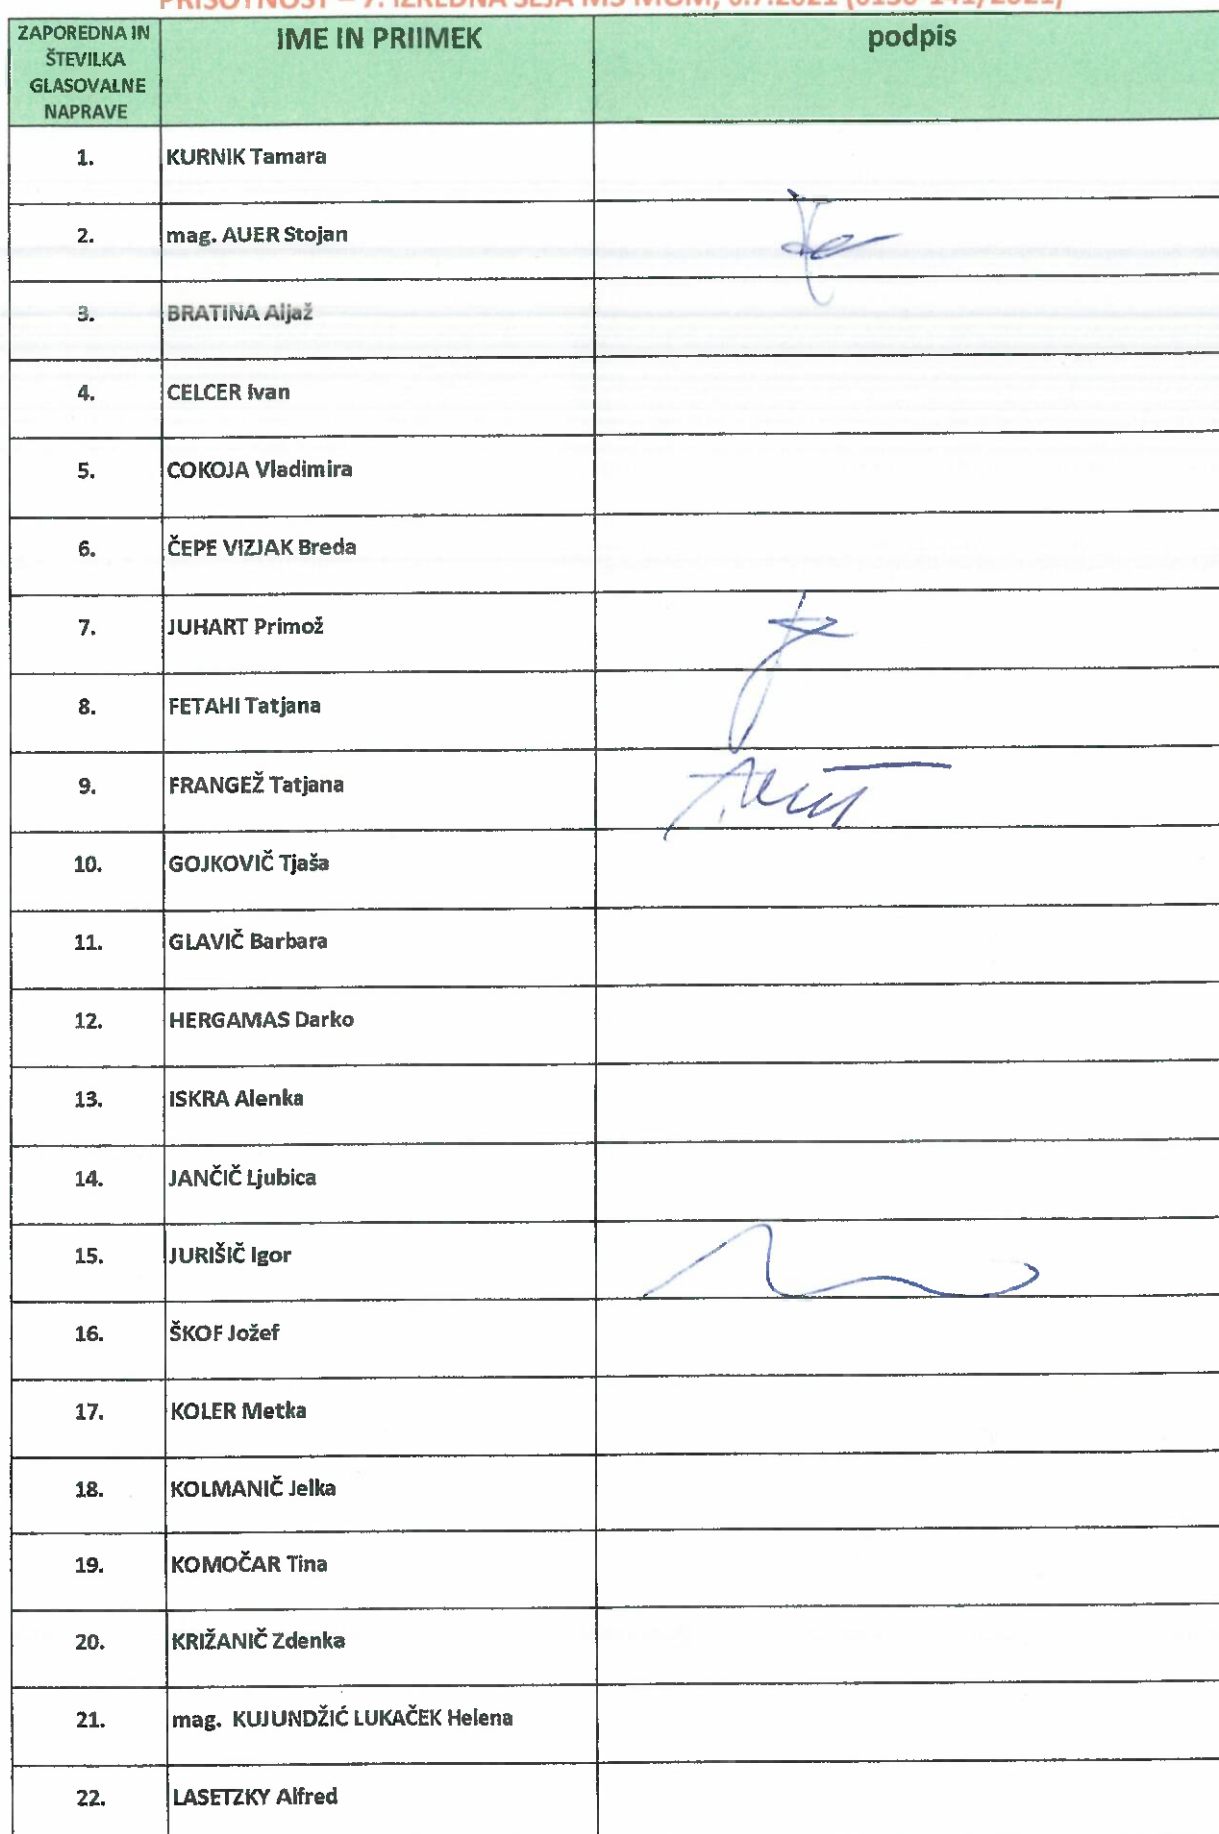 PRISOTNOST – 7. IZREDNA SEJA MS MOM, 6.7.2021 (0130-141/2021)
ZAPOREDNA IN ŠTEVILKA GLASOVALNE NAPRAVE IME IN PRIIMEK podpis
1. KURNIK Tamara
2. mag. AUER Stojan
3. BRATINA Aljaž
4. CELCER Ivan
5. COKOJA Vladimira
6. ČEPE VIZJAK Breda
7. JUHART Primož
8. FETAHI Tatjana
9. FRANGEŽ Tatjana
10. GOJKOVIČ Tjaša
11. GLAVIČ Barbara
12. HERGAMAS Darko
13. ISKRA Alenka
14. JANČIČ Ljubica
15. JURIŠIČ Igor
16. ŠKOF Jožef
17. KOLER Metka
18. KOLMANIČ Jelka
19. KOMOČAR Tina
20. KRIŽANIČ Zdenka
21. mag. KUJUNDŽIĆ LUKAČEK Helena
22. LASETZKY Alfred